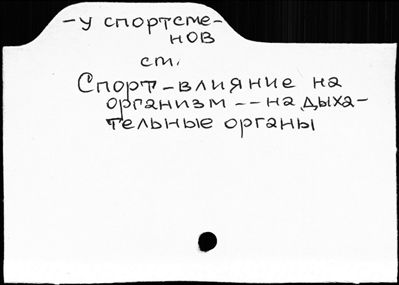 -у спортсме-
нов
ст.
Спорт-влияние на
организм -- на дыха-
тельные органы